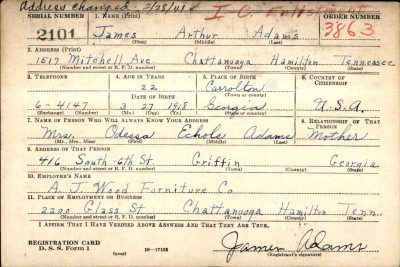 Address changed - 2/28/41
I.C. Enlistment
SERIAL NUMBER 1. NAME (Print) ORDER NUMBER
2101 James Arthur Adams 3863
(First) (Middle) (Last)
2. ADDRESS (Print)
1517 Mitchell Ave. Chattanooga Hamilton Tennessee
(Number and street or R. F. D. number) (Town) (County) (State)
3. TELEPHONE 4. AGE IN YEARS 5. PLACE OF BIRTH 6. COUNTRY OF CITIZENSHIP
22 Carrolton
DATE OF BIRTH (Town or county)
6-4147 3 27 1918 Georgia U.S.A.
(Exchange) (Number) (Mo.) (Day) (Yr.) (State or country)
7. NAME OF PERSON WHO WILL ALWAYS KNOW YOUR ADDRESS 8. RELATIONSHIP OF THAT PERSON
Mrs. Odessa Echols Adams Mother
(Mr., Mrs., Miss) (First) (Middle) (Last)
9. ADDRESS OF THAT PERSON
416 South 6th St. Griffin Georgia
(Number and street or R. F. D. number) (Town) (County) (State)
10. EMPLOYER'S NAME
A. J. Wood Furniture Co.
11. PLACE OF EMPLOYMENT OR BUSINESS
2200 Glass St Chattanooga Hamilton Tenn.
(Number and street or R. F. D. number) (Town) (County) (State)
I AFFIRM THAT I HAVE VERIFIED ABOVE ANSWERS AND THAT THEY ARE TRUE.
REGISTRATION CARD
D. S. S. Form 1 16-17105 James Adams
(over) (Registrant's signature)